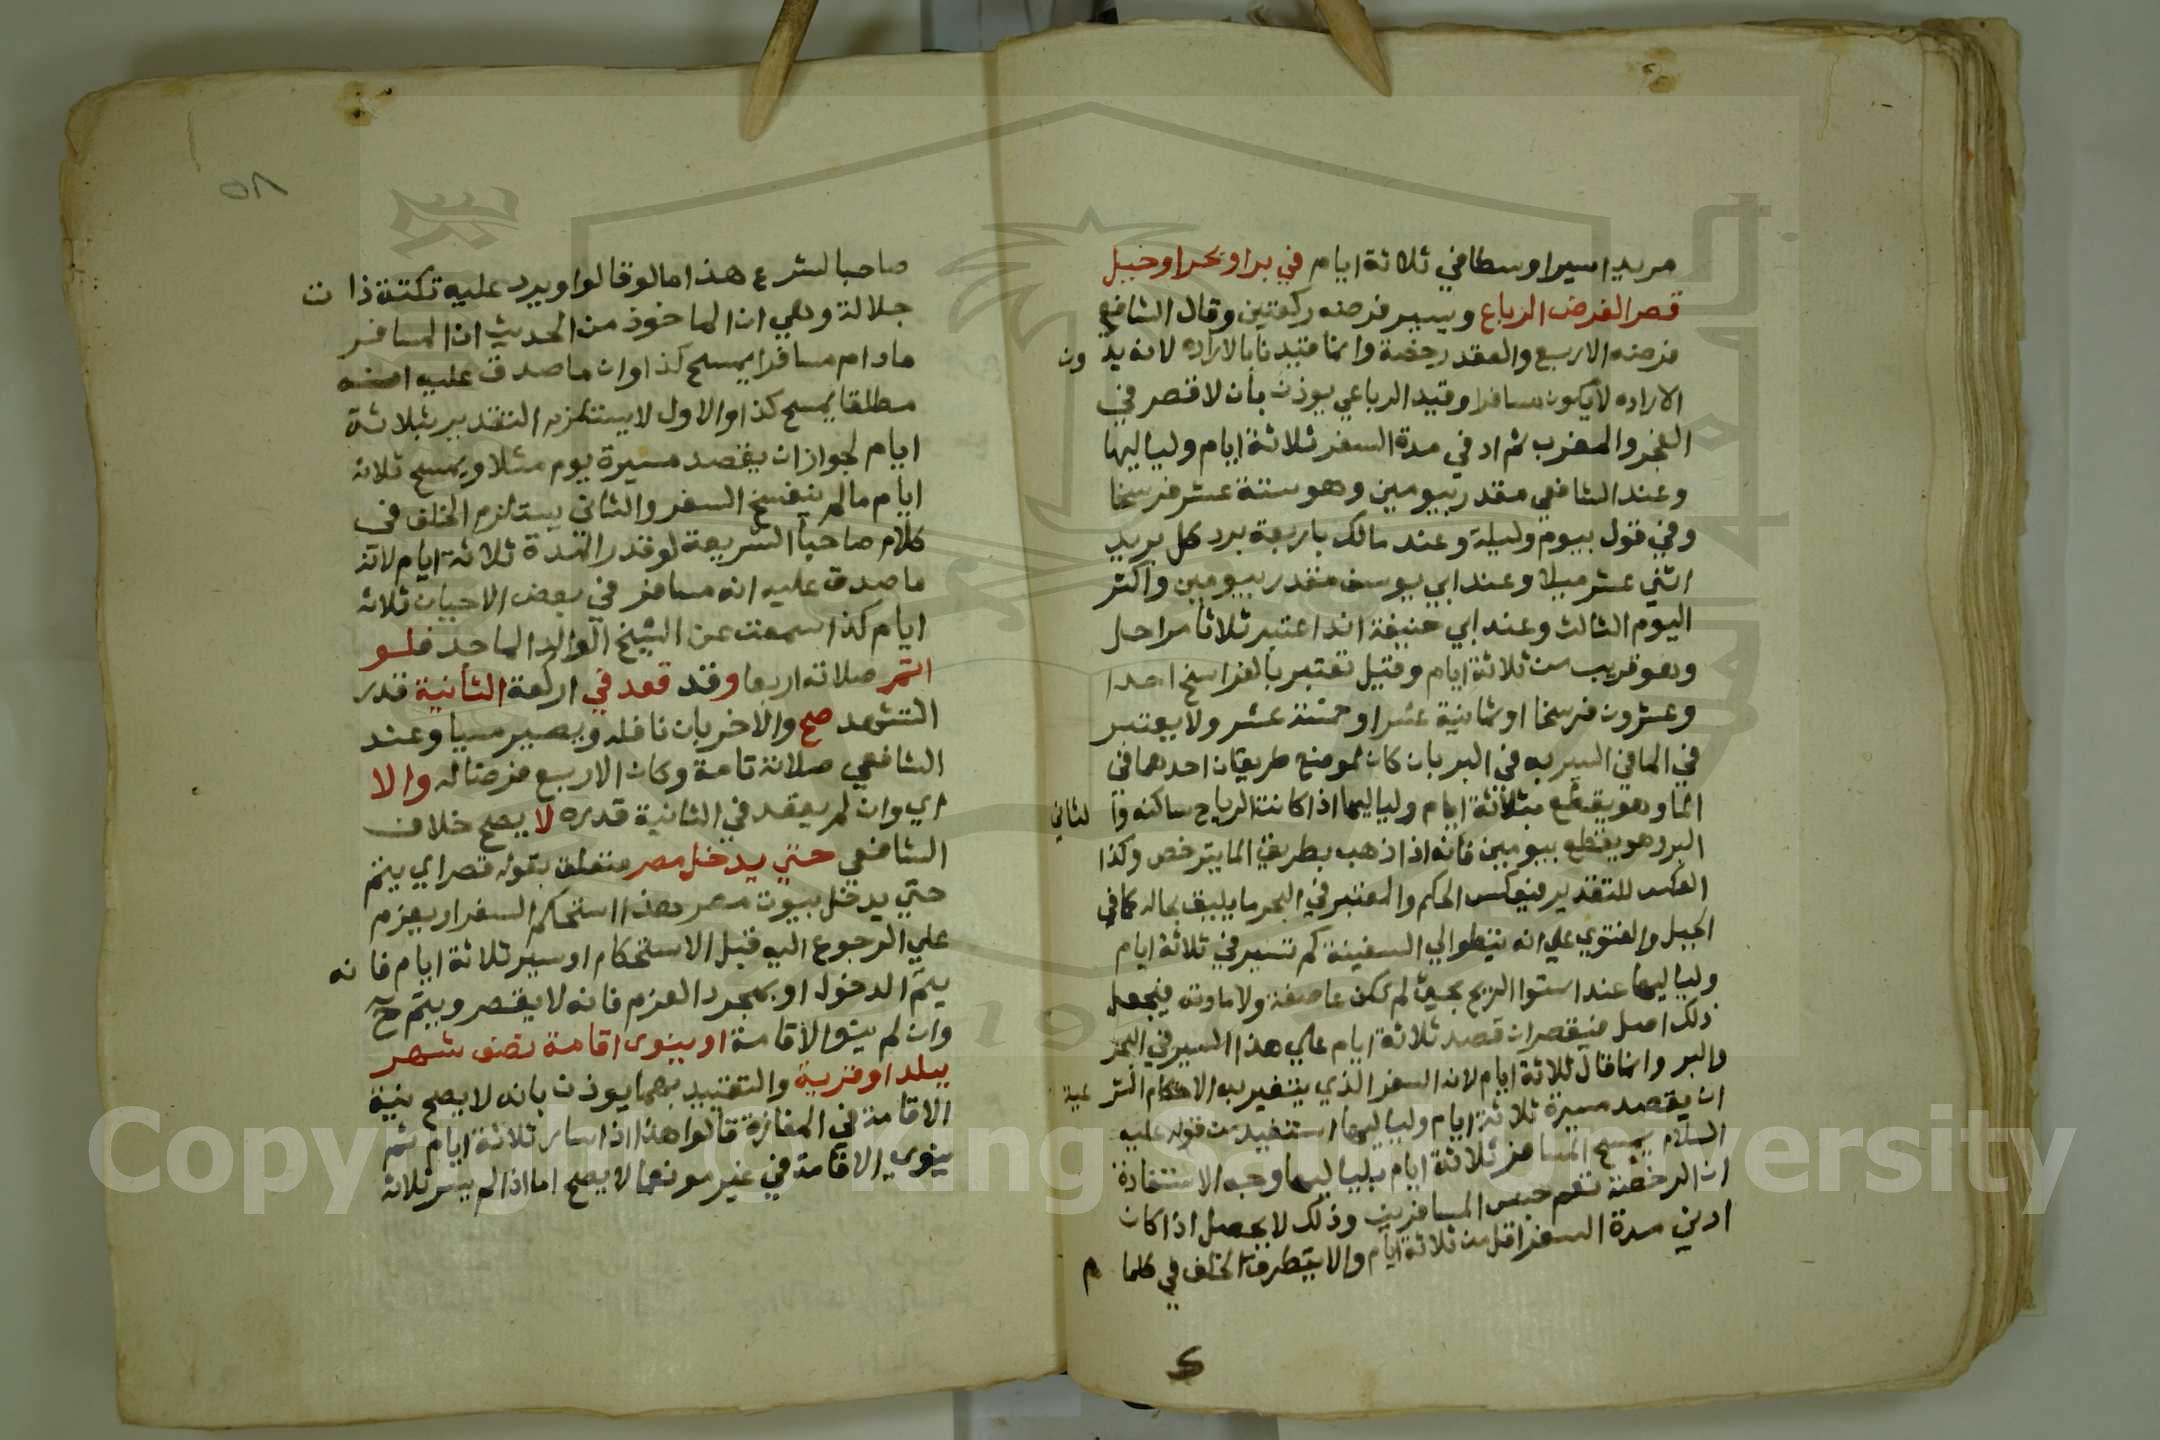 مريدا سيرا وسطا في ثلاثة ايام في بر او بحر او جبل
قصر الفرض الرباع ويسير فرضه ركعتين وقال الشافعي
فرضه الاربع والعقد رخصة وانما قيدنا بالاراده لانه بد ون
الاراده لا يكون مسافرا وقيد الرباعي يوذن بان لا قصر في
الفجر والمغرب ثم ادني مدة السفر ثلاثة ايام ولياليها
وعند الشافعي مقدر بيومين وهو ستة عشر فرسخا
وفي قول بيوم وليلة وعند مالك باربعة برد كل بريد
اثني عشر ميلا وعند ابي يوسف مقدر بيومين واكثر
اليوم الثالث وعند ابي حنيفة انه اعتبر ثلاثا مراحل
وهو قريب من ثلاثة ايام وقيل تعتبر بالفراسخ احدا
وعشرون فرسخا او ثمانية عشر او خمسة عشر ولا يعتبر
في الما في السير به في البر بان كان لموضع طريقان احدهما في
الما وهو يقطع بثلاثة ايام ولياليها اذا كانت الرياح ساكنه وا لثاني
البر وهو يقطع بيومين فانه اذا ذهب بطريق الما يترخص وكذا
العكس للتقدير فينعكس الحكم والمعتبر في البحر ما يليق بحاله كما في
الجبل والفتوي علي انه ينظر الي السفينة كم تسير في ثلاثة ايام
ولياليها عند استوا الريح بحيث لم تكن عاصفة ولا هاديه فيجعل
ذلك اصل فيقصر ان قصد ثلاثة ايام علي هذا السير في البحر
والبر وانما قال ثلاثة ايام لان السفر الذي يتغير به الاحكام الشر عية
ان يقصد مسيرة ثلاثة ايام ولياليها استفيد من قوله عليه
السلام يمسح المسافر ثلاثة ايام بلياليها وجه الاستفادة
ان الرخصة تعم جنس المسافرين وذلك لا يحصل اذا كان
ادني مدة السفر اقل من ثلاثة ايام والا يتطرق الخلف في كلما م
٥٨
صاحب الشرع هذا ما لو قالوا ويرد عليه نكتة ذا ت
جلالة وهي ان الماخوذ من الحديث ان المسافر
مادام مسافرا يمسح كذا وان ما صدق عليه انه
مطلقا يمسح كذا والاول لا يستلزم التقدير بثلاثة
ايام لجواز ان يقصد مسيرة يوم مثلا ويمسح ثلاثة
ايام ما لم ينفسخ السفر والثاني يستلزم الخلف في
كلام صاحب الشريعة لو قدر المدة ثلاثة ايام لانه
ما صدق عليه انه مسافر في بعض الاحيان ثلاثة
ايام كذا سمعت عن الشيخ الوالد الماجد فلو
اتم صلاته اربعا وقد قعد في الركعة الثانية قدر
التشهد صح والاخريان نافله ويصير مسيا وعند
الشافعي صلاته تامة وكان الاربع فرضا له والا
اي وان لم يقعد في الثانية قدره لا يصح خلاف
الشافعي حتي يدخل مصر متعلق بقوله قصر اي يتم
حتي يدخل بيوت مصر هذا استحكم السفر او يعزم
علي الرجوع اليه قبل الاستحكام او سير ثلاثة ايام فا نه
يتم الدخول او بمجرد العزم فانه لا يقصر ويتم ح
وان لم ينو الاقامة او ينوي اقامة نصف شهر
ببلد او قرية والتقييد بهما يوذن بانه لا يصح نية
الاقامة في المفازة قالوا هذا اذا سار ثلاثة ايام ثم
ينوي الاقامة في غير موضعها لا يصح اما اذا لم يسر ثلاثة
Copyright © King Saud University